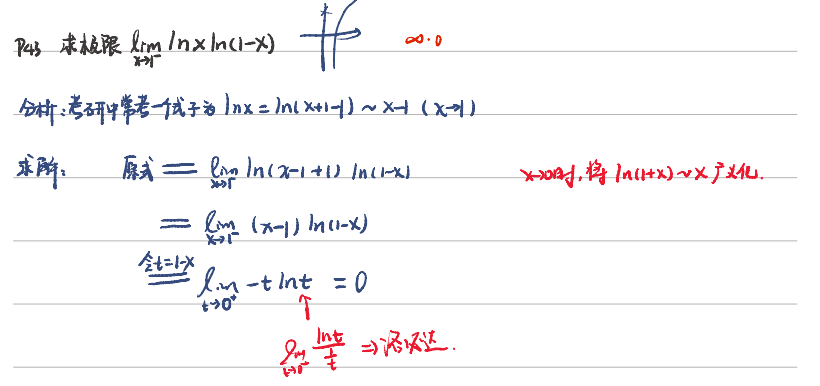 P43 求极限 lim x→1⁻ lnx ln(1-x) ∞·0
分析:考研中常考一个式子为 lnx = ln(x+1-1) ~ x-1 (x→1)
求解: 原式 = lim x→1⁻ ln(x-1+1) ln(1-x) x→0时,将 ln(1+x)~x 广义化.
= lim x→1⁻ (x-1) ln(1-x)
令t=1-x = lim t→0⁺ -t lnt = 0
lim t→0⁺ lnt / (1/t) ⇒ 洛必达.